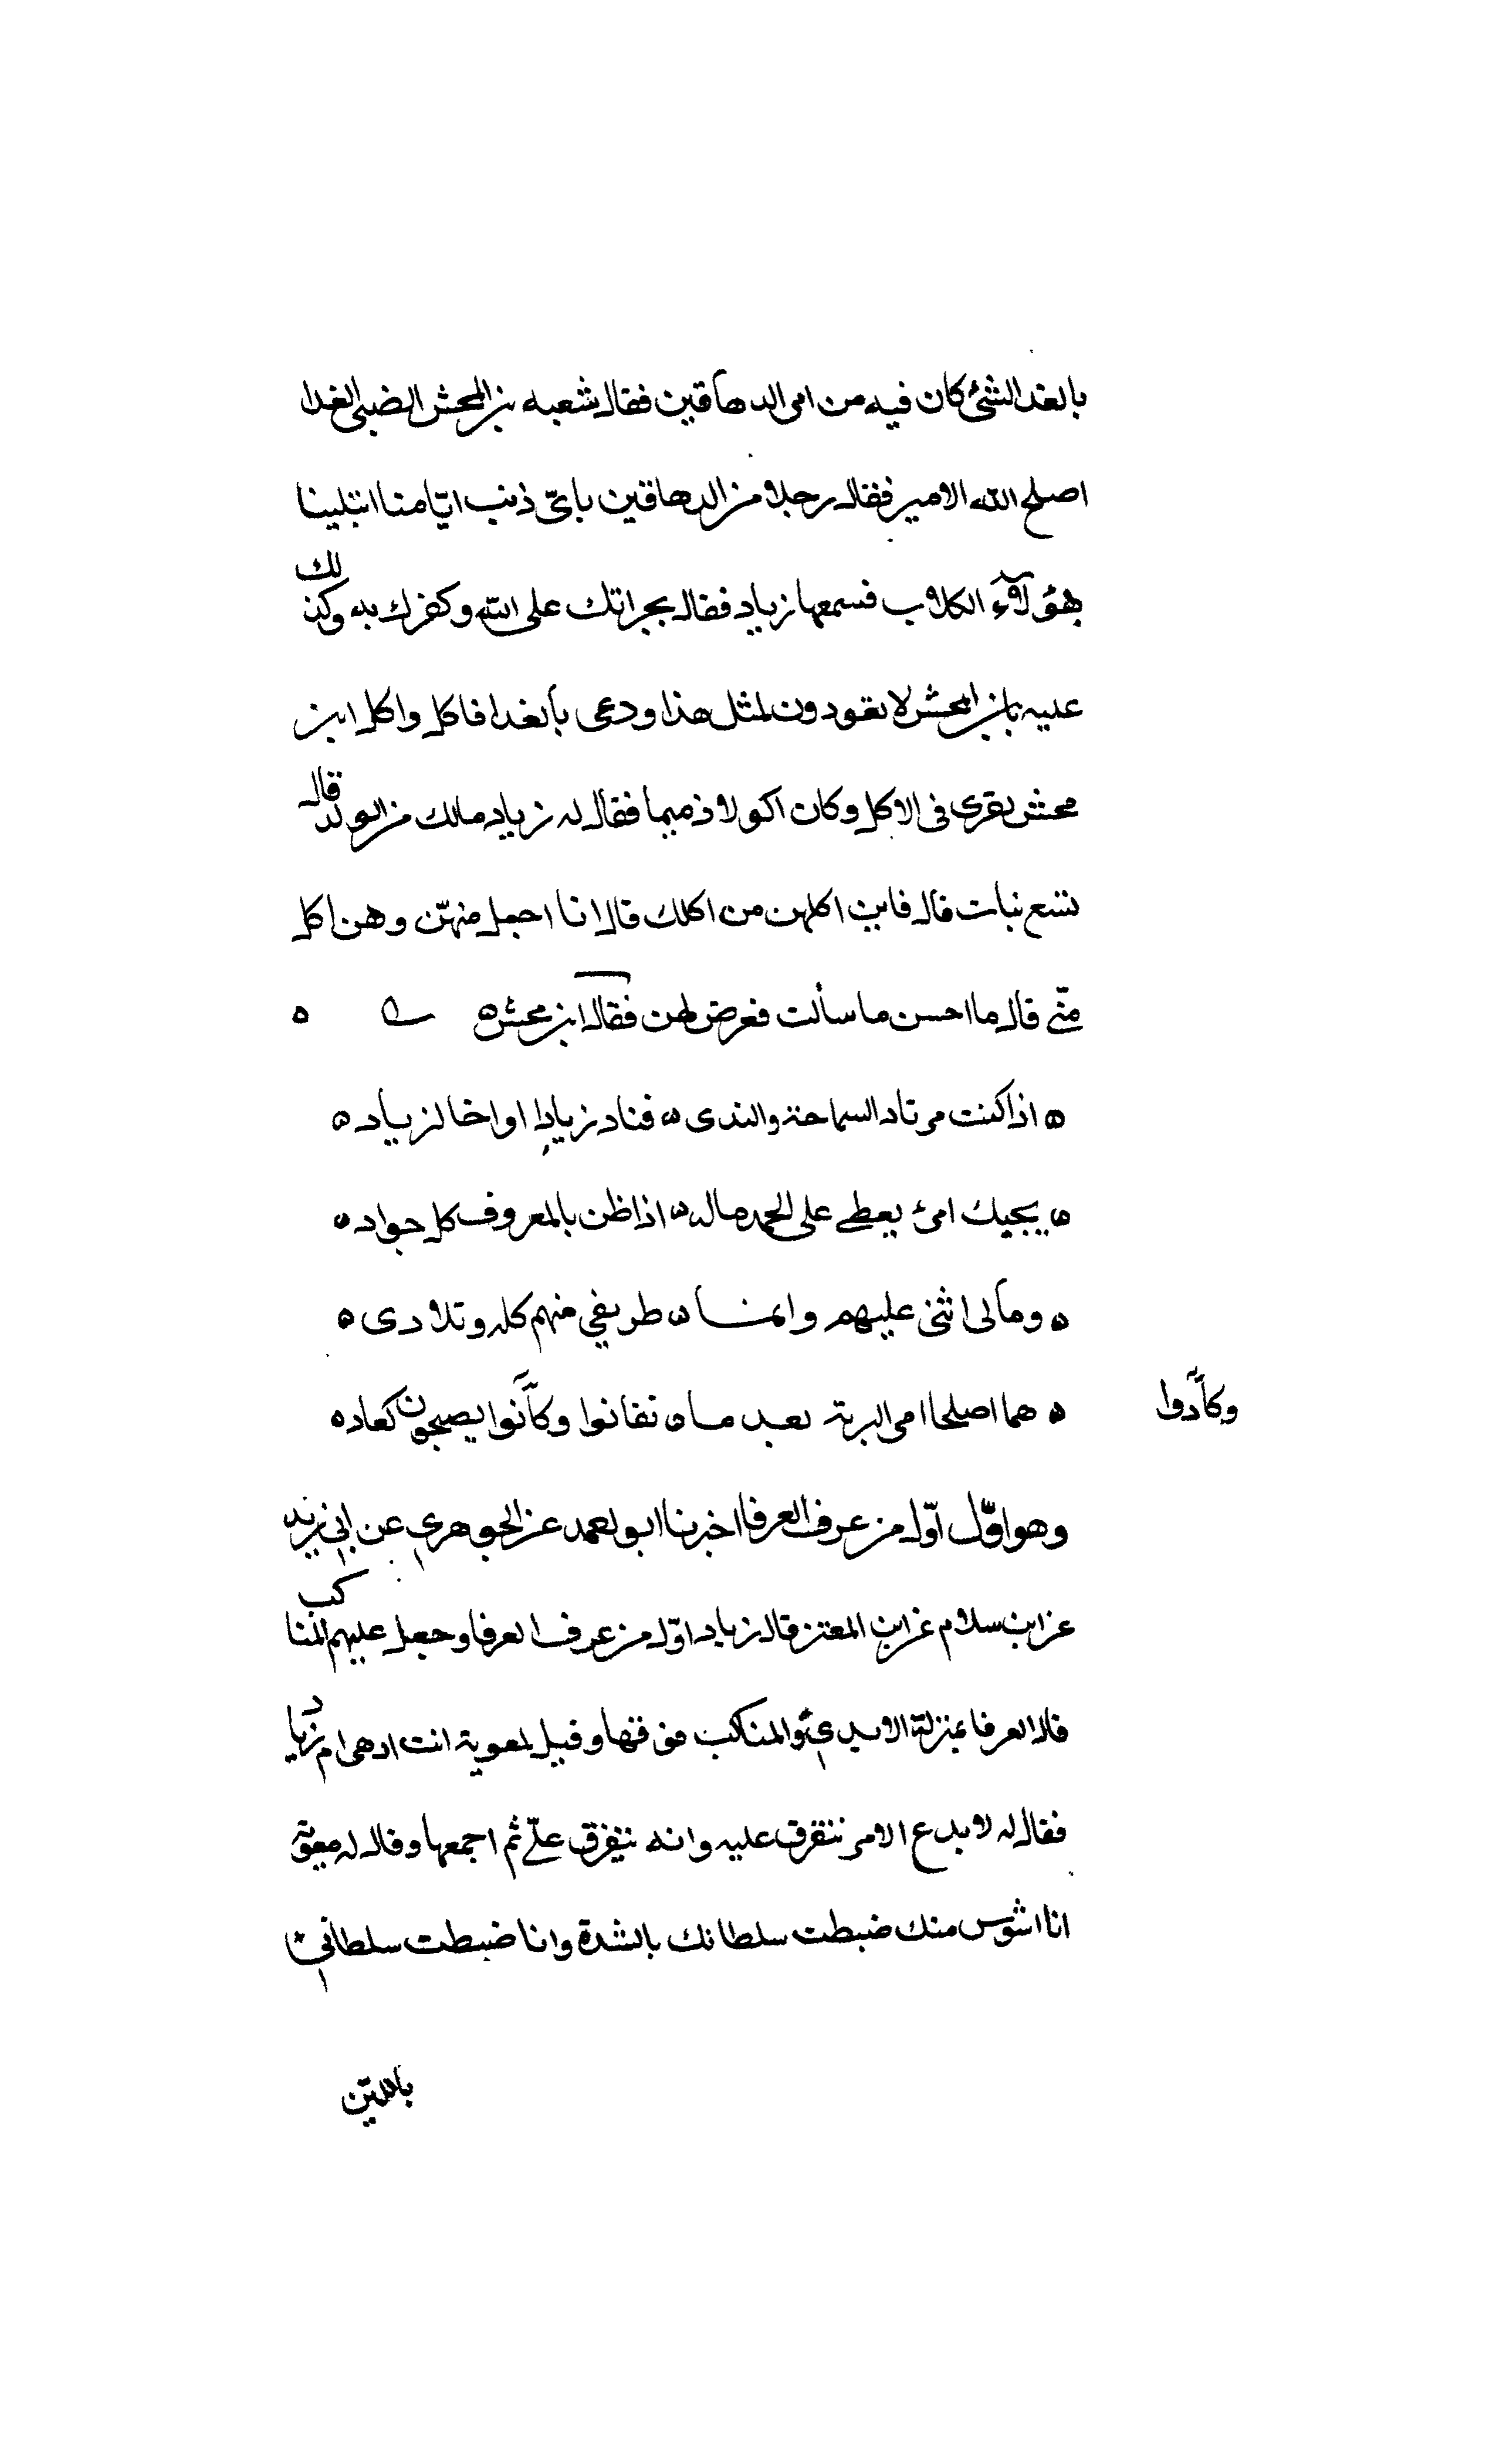 بالغد الشئ كان فيه من امر الدهاقين فقال شعبه بن المحش الضبى الغدا
اصلح الله الامير فقال رجلا من الدهاقين باىّ ذنب ايّامنا ابتلينا
هؤلآء الكلاب فسمعها زياد فقال بجراتك على الله وكفرك به وكذلك
عليه يابن المحش لا تعودون لمثل هذا ودعى بالغدا فاكل واكل ابن
محش يقرى فى الاكل وكان اكولا ذميما فقال له زياد مالك من الولد قال
تسع بنات قال فاين اكلهن من اكلك قال انا اجمل منهنّ وهن اكل
منّى قال ما احسن ما سألت ففرض لهن فقال ابن محش
اذا كنت مرتاد السماحة والندى ه فناد زيادا او اخا لزياد ه
ه يجيك امرئ يعطى على الحمد ماله ه اذا ظن بالمعروف كل جواد ه
ه ومالى اثنى عليهم وانما ه طريفي منهم كله وتلادى ه
ه هما اصلحا امر البرية بعد ما ه تفانوا وكانّوا يصبحون كعاد ه
وكادّوا
وهو اوّل اوّل من عرف العرفا اخبرنا ابو احمد عن الجوهري عن ابي زيد
عن ابن سلام عن ابن المعتز قال زياد اوّل من عرف العرفا وجعل عليهم المناكب
قال العرفا بمنزلة الايدي والمناكب فوقها وقيل لمعوية انت ادهى ام زياد
فقال له لا يدع الامر يتفرق عليه وانه يتفرق علىّ ثم اجمعها وقال له معوية
انا اشوس منك ضبطت سلطانك بالشدة وانا ضبطت سلطاني
باللين